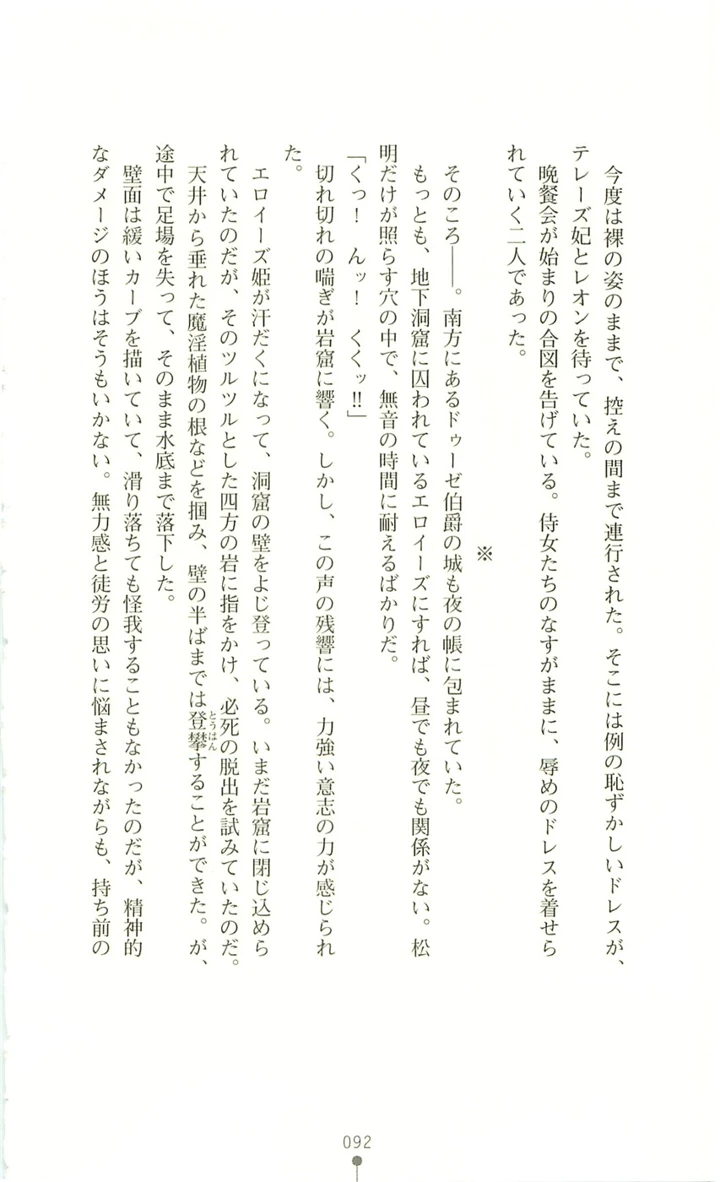 今度は裸の姿のままで、控えの間まで連行された。そこには例の恥ずかしいドレスが、
テレーズ妃とレオンを待っていた。
晩餐会が始まりの合図を告げている。侍女たちのなすがままに、辱めのドレスを着せら
れていく二人であった。
※
そのころ――。南方にあるドゥーゼ伯爵の城も夜の帳に包まれていた。
もっとも、地下洞窟に囚われているエロイーズにすれば、昼でも夜でも関係がない。松
明だけが照らす穴の中で、無音の時間に耐えるばかりだ。
「くっ！　んッ！　くくッ!!」
切れ切れの喘ぎが岩窟に響く。しかし、この声の残響には、力強い意志の力が感じられ
た。
エロイーズ姫が汗だくになって、洞窟の壁をよじ登っている。いまだ岩窟に閉じ込めら
れていたのだが、そのツルツルとした四方の岩に指をかけ、必死の脱出を試みていたのだ。
天井から垂れた魔淫植物の根などを掴み、壁の半ばまでは登攀することができた。が、
とうはん
途中で足場を失って、そのまま水底まで落下した。
壁面は緩いカーブを描いていて、滑り落ちても怪我することもなかったのだが、精神的
なダメージのほうはそうもいかない。無力感と徒労の思いに悩まされながらも、持ち前の
092